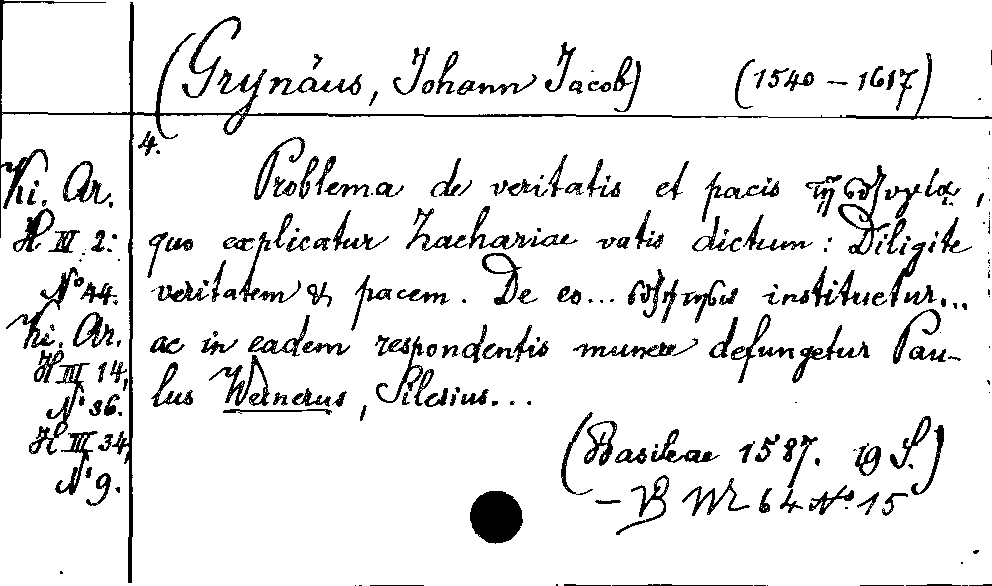 (Grynäus, Johann Jacob) (1540 – 1617)
4.
Problema de veritatis et pacis
quo explicatur Zachariae vatis dictum: Diligite
veritatem & pacem. De eo... instituetur...
ac in eadem respondentis munere defungetur Pau-
lus Wernerus, Silesius...
(Basileae 1587. 19 S.)
– 64 No. 15
Ki. Ar.
H III 2:
No 44.
Ki. Ar.
H III 14,
No 36.
H III 34,
No 9.